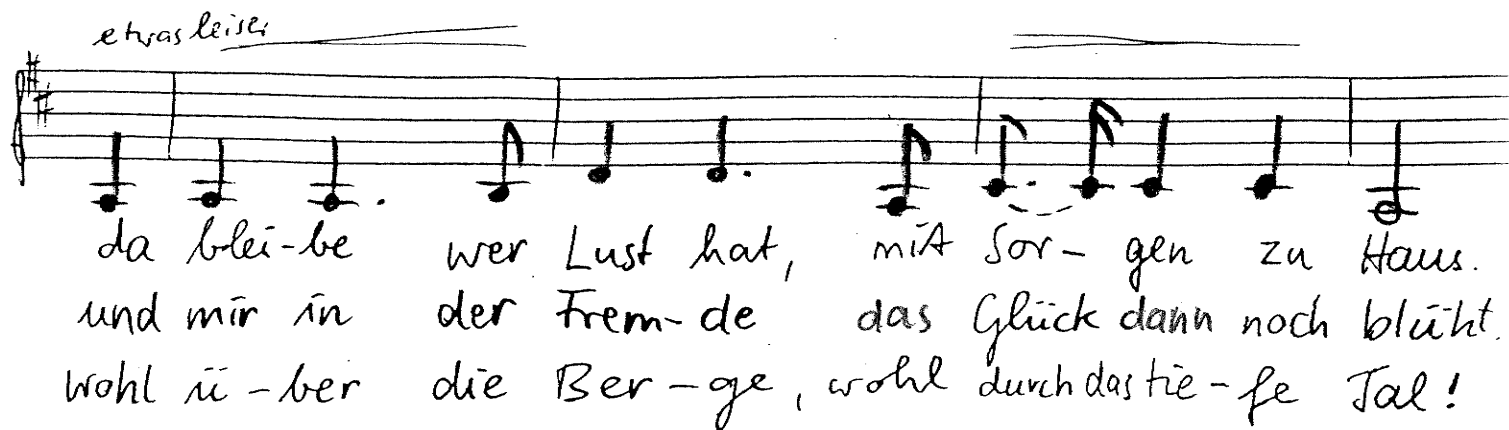 etwas leiser
da blei-be wer Lust hat, mit Sor- gen zu Haus.
und mir in der Frem-de das Glück dann noch blüht.
wohl ü-ber die Ber-ge, wohl durch das tie-fe Tal!